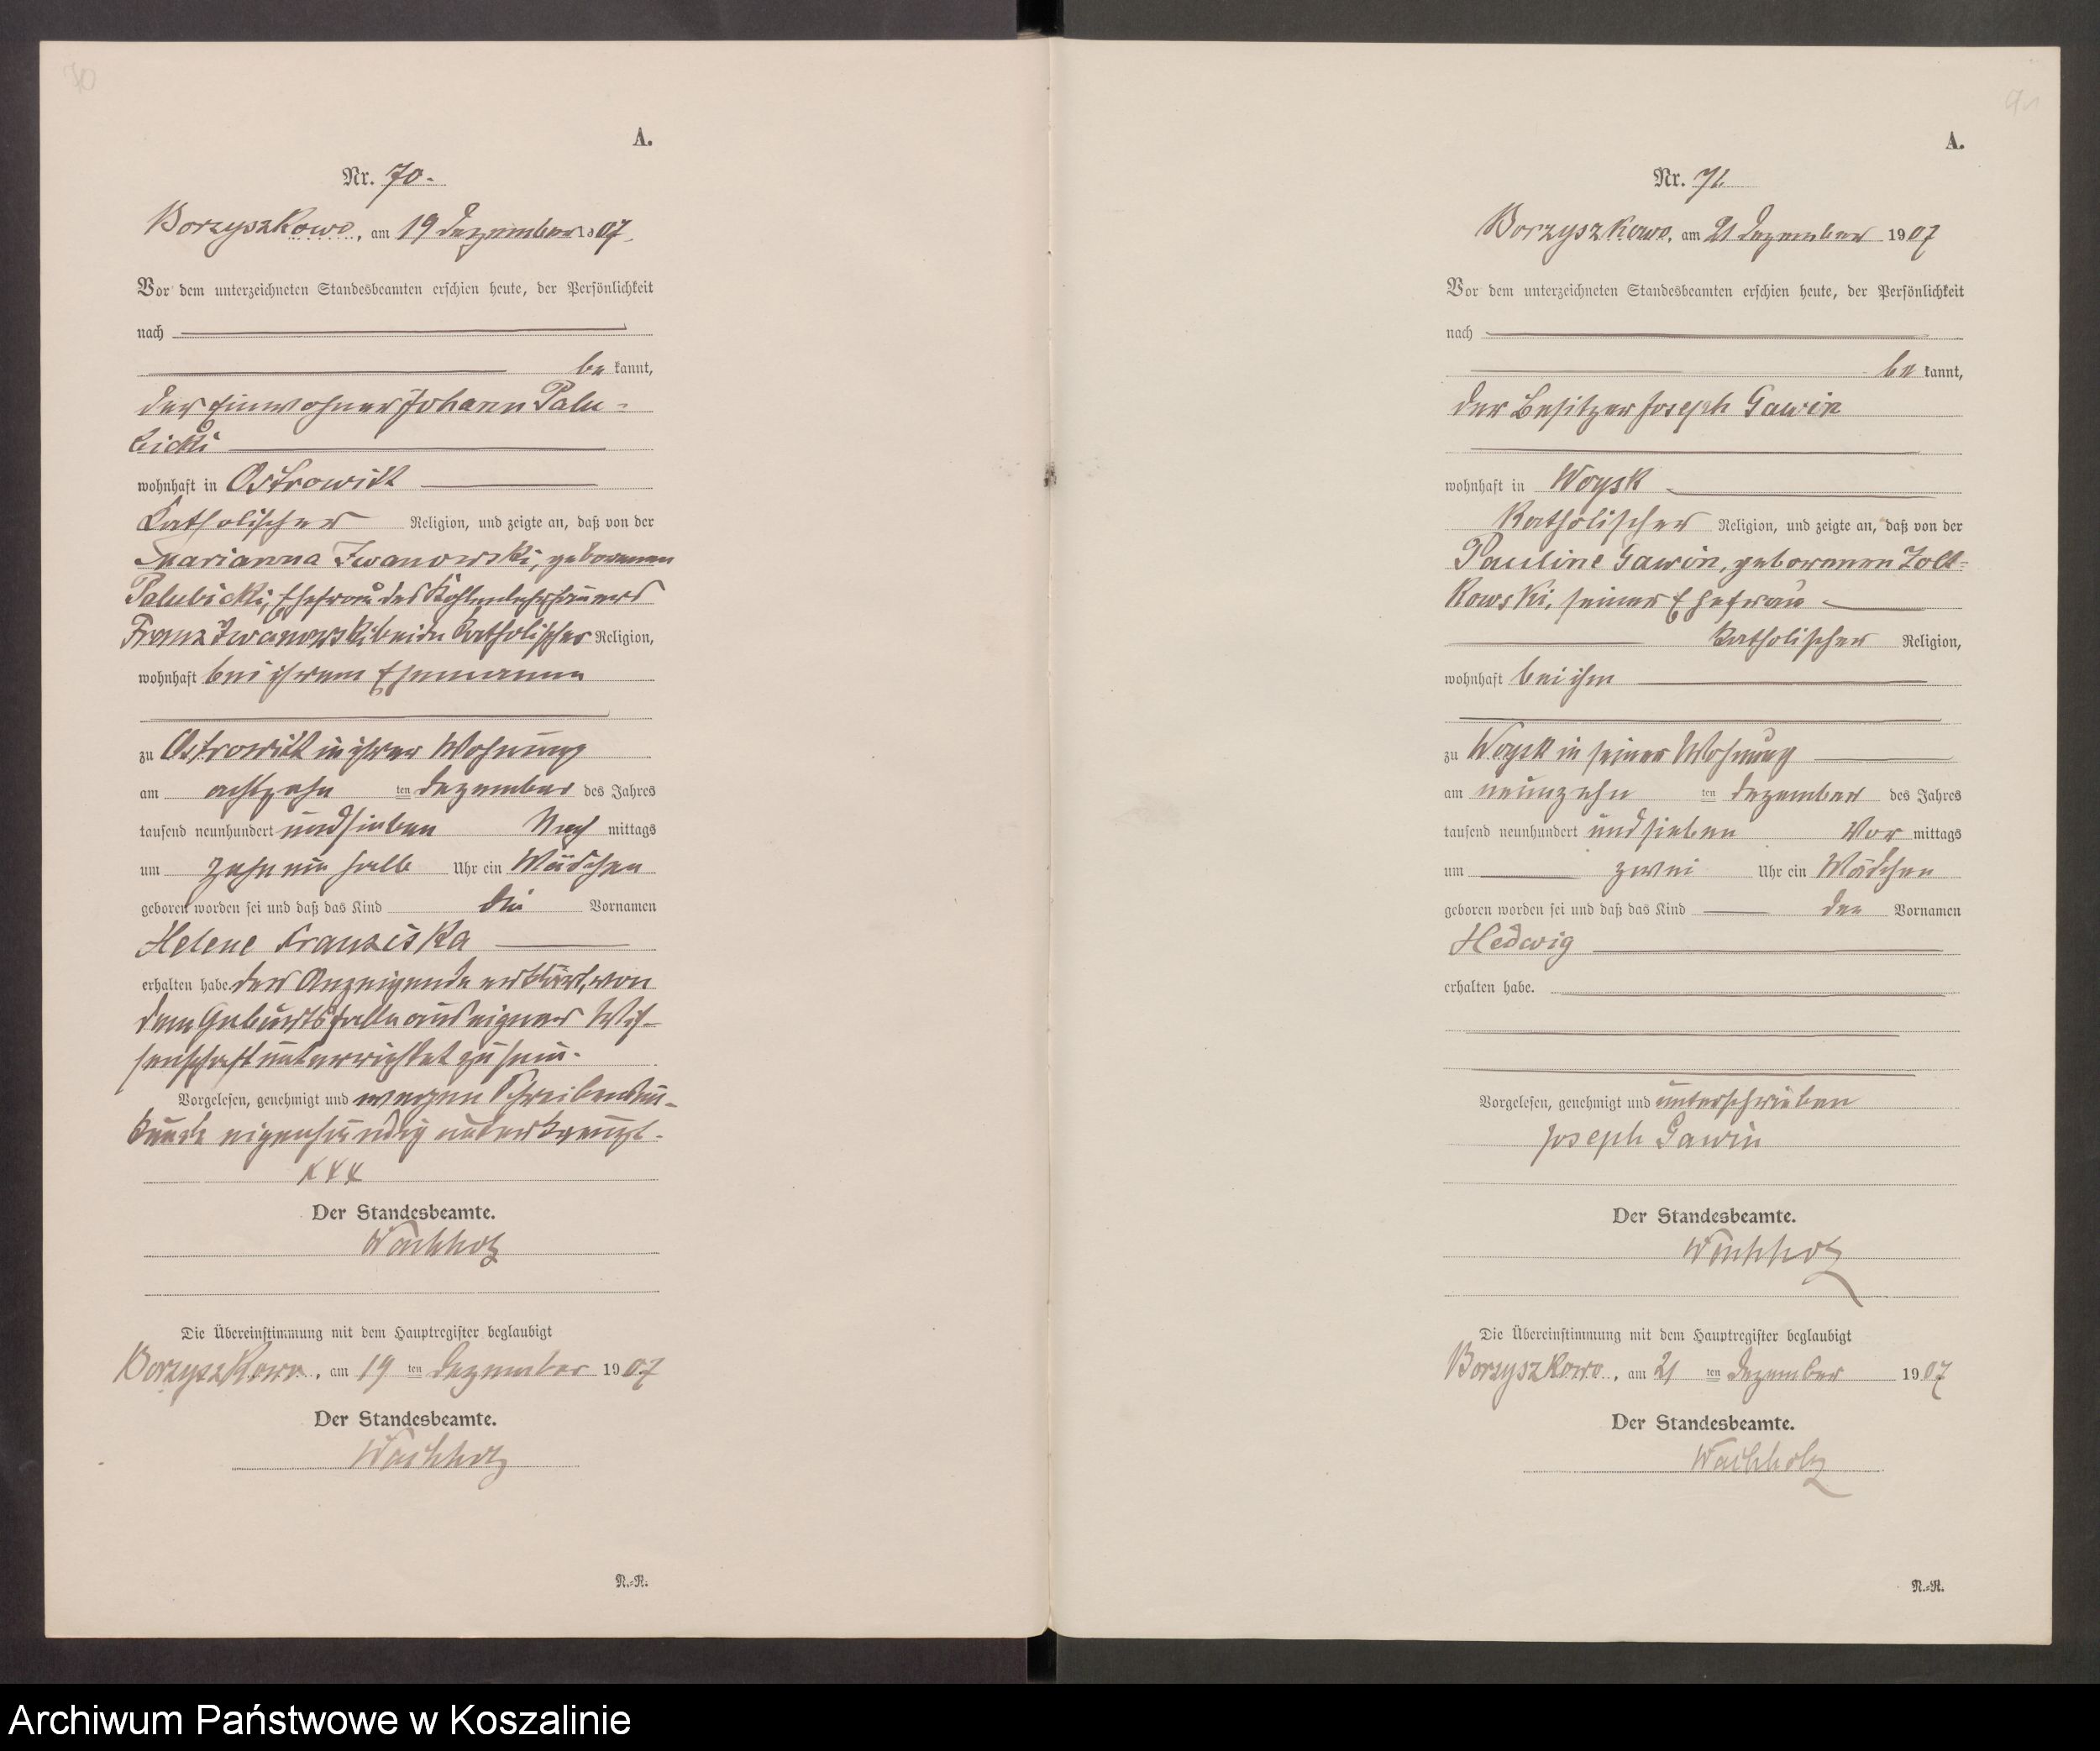 70
A.
Nr. 70.
Borzyszkowo, am 19 Dezember 1907.
Vor dem unterzeichneten Standesbeamten erschien heute, der Persönlichkeit
nach
be kannt,
der Einwohner Johann Palu-
bicki
wohnhaft in Ostrowitt
katholischer Religion, und zeigte an, daß von der
Marianna Iwanowski, geborenen
Palubicki, Ehefrau des Kohlenlehrhäuers
Franz Iwanowski beide katholischer Religion,
wohnhaft bei ihrem Ehemanne
zu Ostrowitt in ihrer Wohnung
am achtzehn ten Dezember des Jahres
tausend neunhundert und sieben Nach mittags
um zehn ein halb Uhr ein Mädchen
geboren worden sei und daß das Kind die Vornamen
Helene Franziska
erhalten habe. Der Anzeigende erklärt, von
dem Geburtsfalle aus eigner Wis-
senschaft unterrichtet zu sein.
Vorgelesen, genehmigt und wegen Schreibensun-
kunde eigenhändig unterkreuzt.
xxx
Der Standesbeamte.
Wachholz
Die Übereinstimmung mit dem Hauptregister beglaubigt
Borzyszkowo, am 19 ten Dezember 1907
Der Standesbeamte.
Wachholz
N.-R.
A.
Nr. 71.
Borzyszkowo, am 21 Dezember 1907
Vor dem unterzeichneten Standesbeamten erschien heute, der Persönlichkeit
nach
be kannt,
der Besitzer Joseph Gawin
wohnhaft in Woysk
katholischer Religion, und zeigte an, daß von der
Pauline Gawin, geborenen Zolt-
kowski, seiner Ehefrau
katholischer Religion,
wohnhaft bei ihm
zu Woysk in seiner Wohnung
am neunzehn ten Dezember des Jahres
tausend neunhundert und sieben Vor mittags
um zwei Uhr ein Mädchen
geboren worden sei und daß das Kind den Vornamen
Hedwig
erhalten habe.
Vorgelesen, genehmigt und unterschrieben
Joseph Gawin
Der Standesbeamte.
Wachholz
Die Übereinstimmung mit dem Hauptregister beglaubigt
Borzyszkowo, am 21 ten Dezember 1907
Der Standesbeamte.
Wachholz
N.-R.
Archiwum Państwowe w Koszalinie